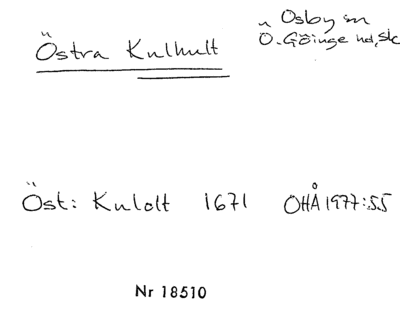 Östra Kulhult
Osby sn
Ö. Göinge hd, Sk
Öst: Kulolt 1671 OHÅ 1977:55
Nr 18510